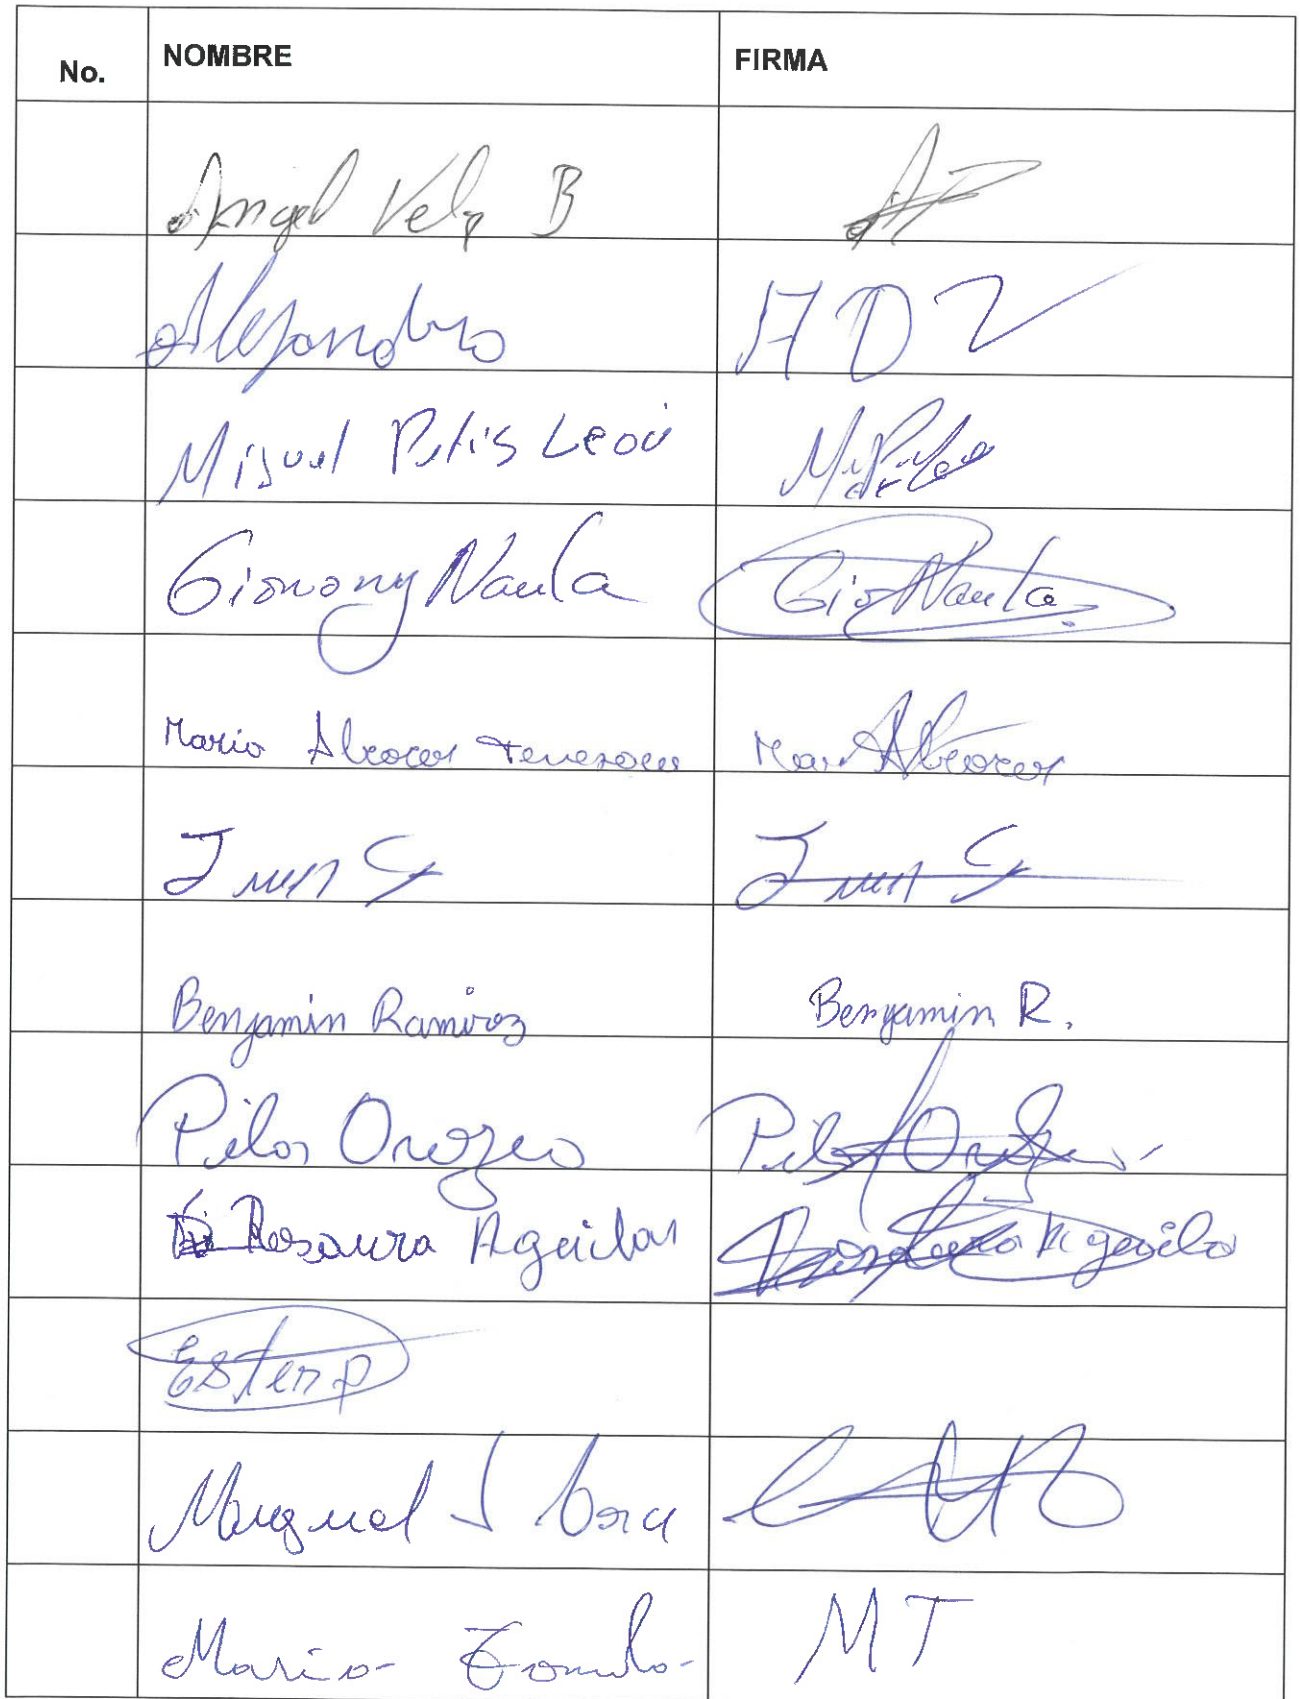 No. NOMBRE FIRMA
Angel Vela B
Alejandro A D V
Miguel León
Giovany Naula Gio Naula
Mario Alcocer Mar Alcocer
Juan C Juan C
Benjamin Ramirez Benjamin R.
Pilar Orozco Pilar Oroz
Rosaura Aguilar Rosaura Aguila
Ester P
Miguel J
Mario M T